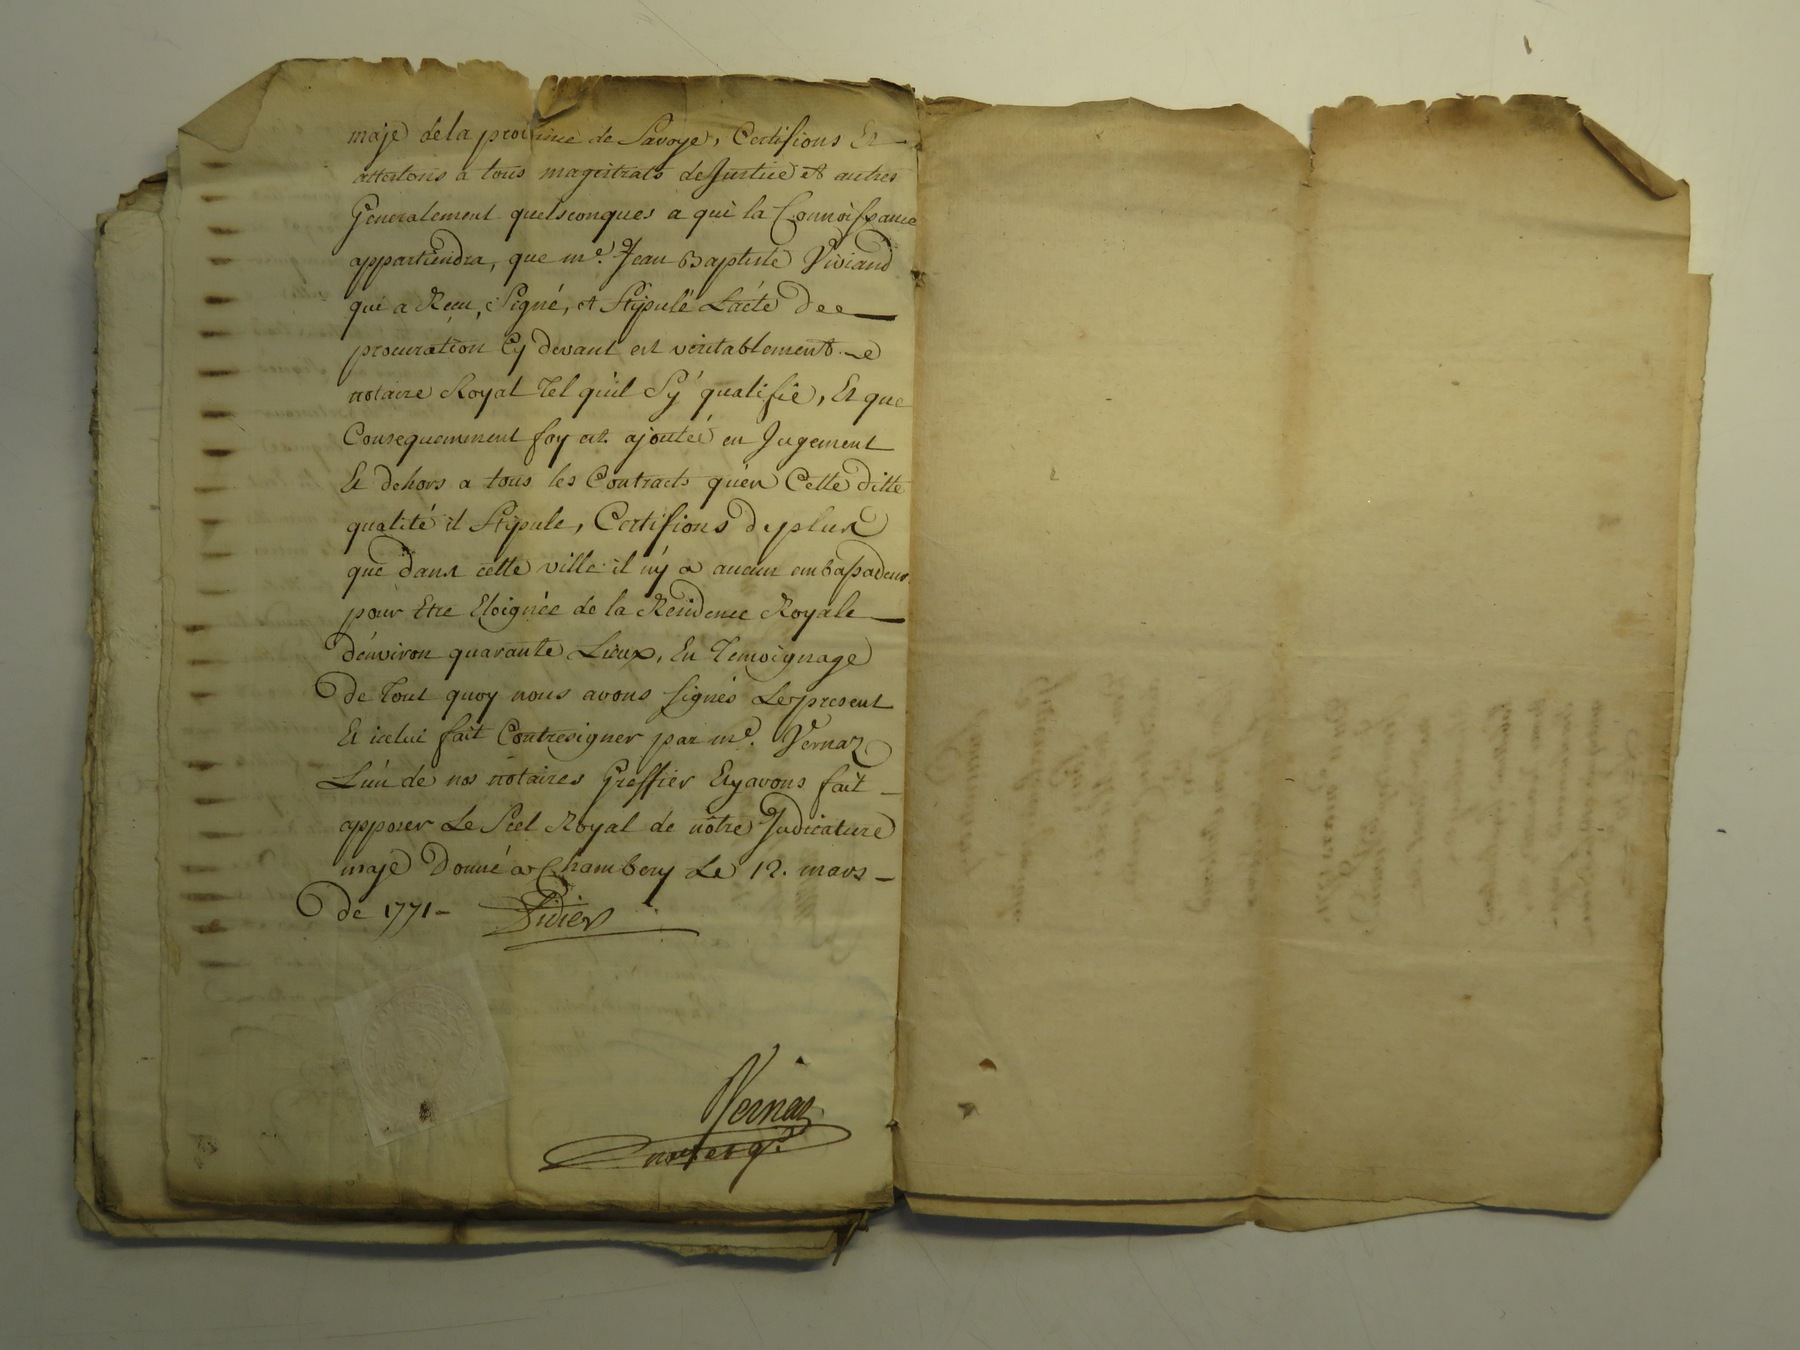 maje de la province de Savoye, Certifions Et
attestons a tous magistrats de Justice et autres
Generalement quelsconques a qui la Connoissance
appartiendra, que me. Jean Baptiste Viviand
qui a Recu, Signé, et Stipulé L'acte De
procuration Cy devant est veritablement
notaire Royal Tel qu'il S'y qualifie, Et que
Consequemment foy est ajoutée en Jugement
Et dehors a tous les Contracts qu'en Cette ditte
qualité il Stipule, Certifions De plus
que dans cette ville il n'y a aucun ambassadeur
pour Etre Eloignée de la Residence Royale
d'environ quarante Lieux, En Temoignage
De Tout quoy nous avons signés Le present
Et icelui fait Contresigner par me. Vernaz
L'un de nos notaires Greffier Et y avons fait
apposer Le Scel Royal de nôtre Judicature
maje Donné a Chambery Le 12. mars
De 1771 Didier
Vernaz